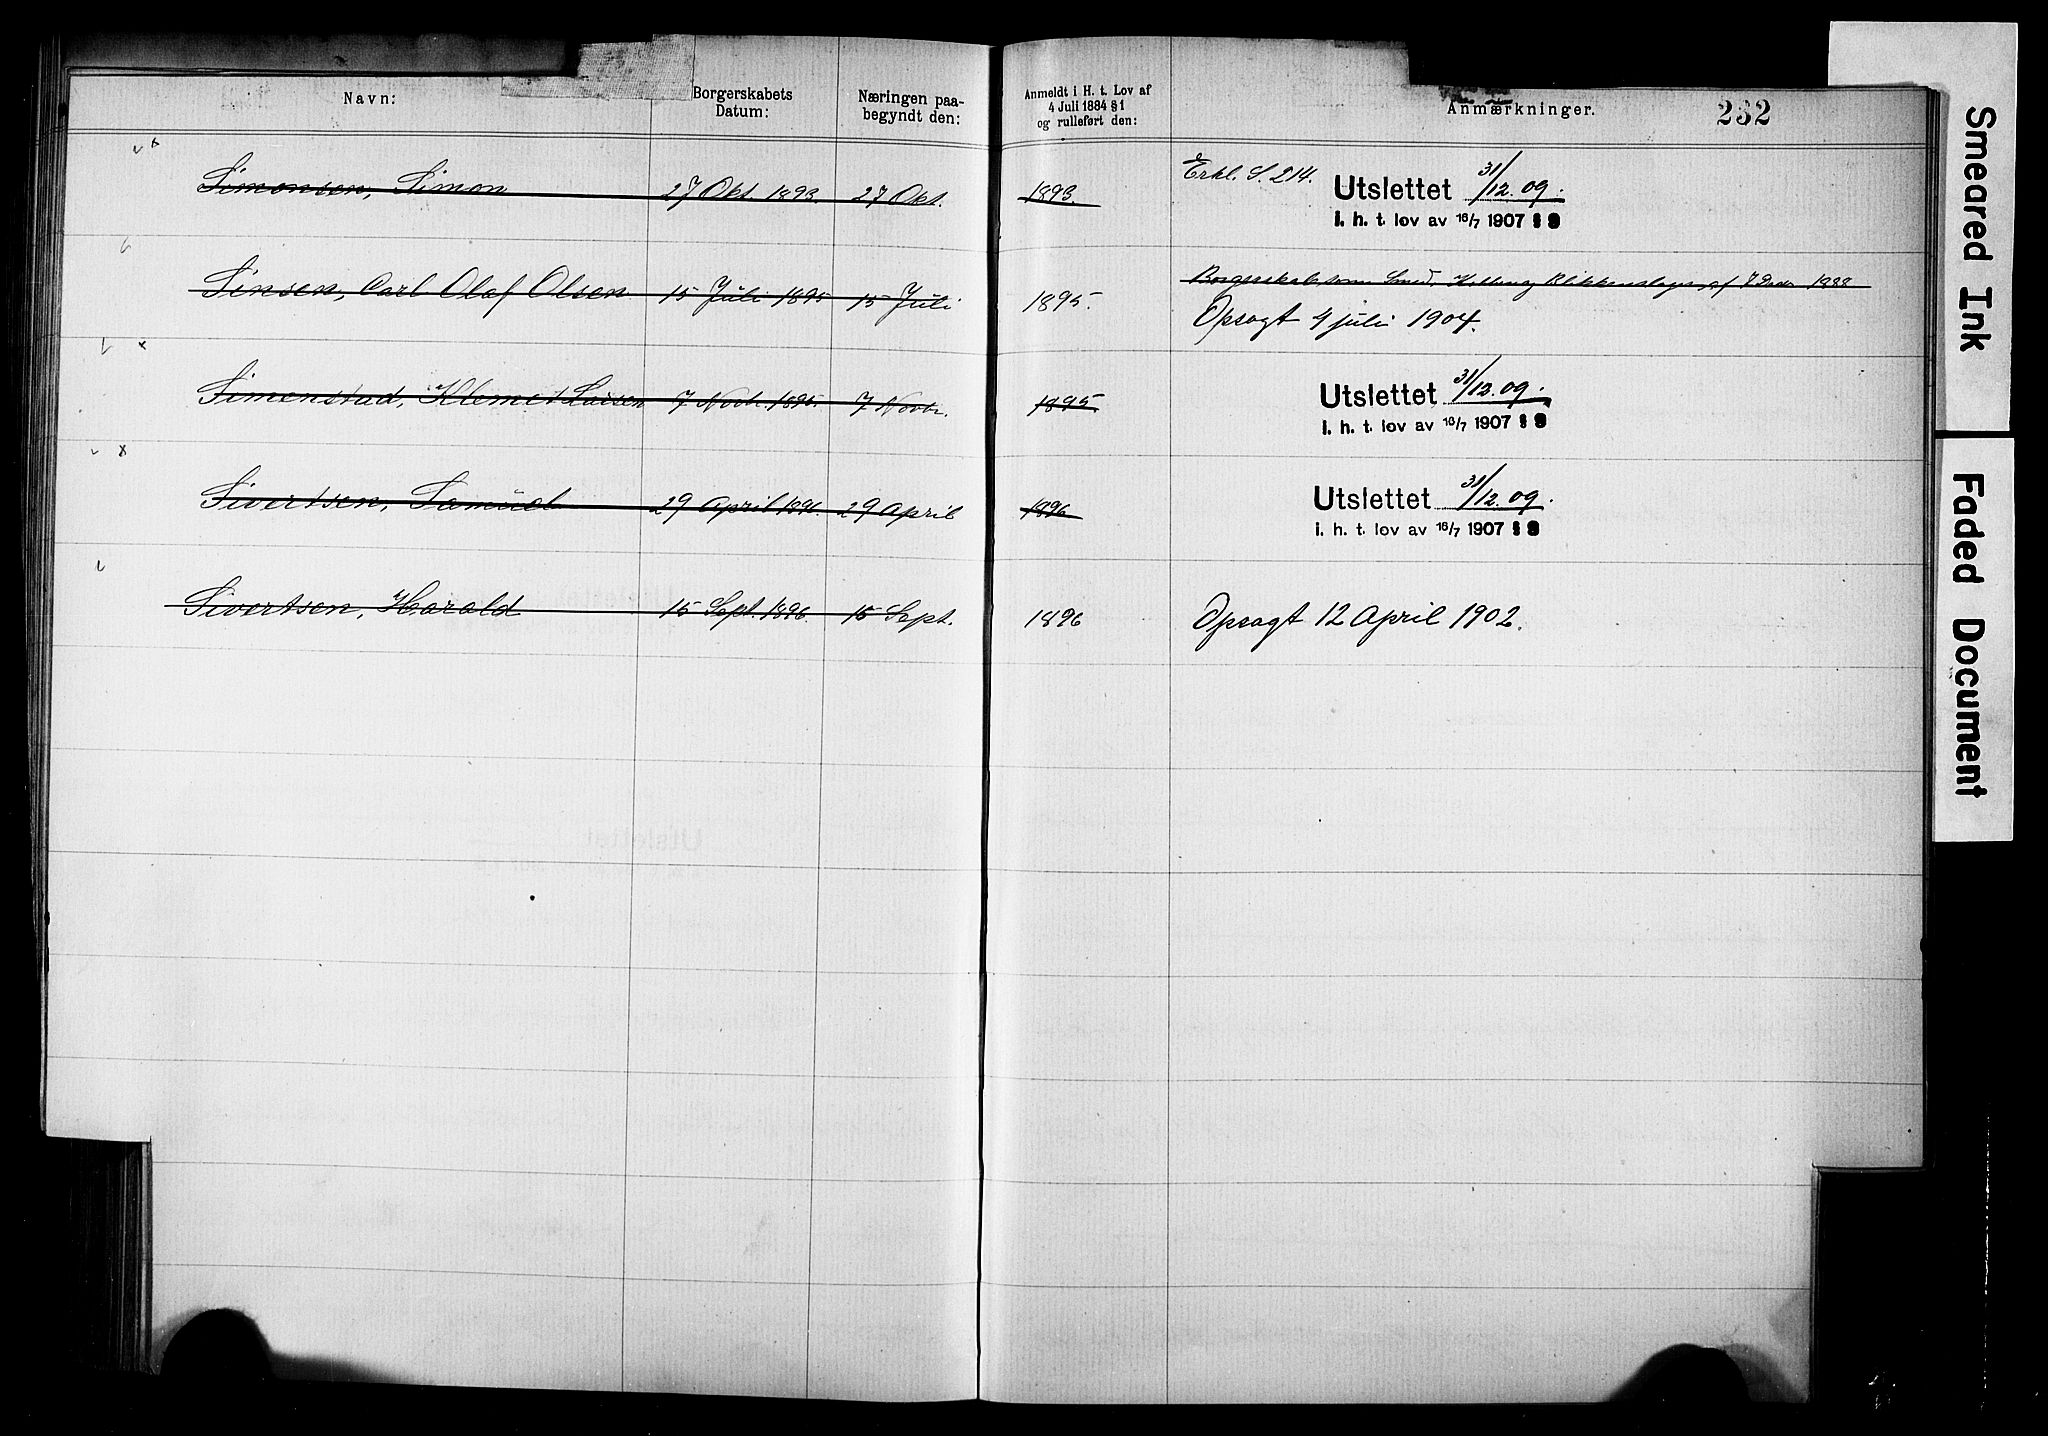 Navn:
Borgerskabets
Datum:
Næringen paa-
begyndt den:
Anmeldt i H. t. Lov af
4 Juli 1884 § 1
og rulleført den:
Anmærkninger.
232
Simonsen, Simon 27 Okt. 1893. 27 Okt. 1893. Erkl. S. 214. Utslettet 31/12.09.
i. h. t. lov av 16/7 1907 § 9
Sinsen, Carl Olaf Olsen 15 Juli 1895 15 Juli 1895. Borgerskab som Smed, og Blikkenslager af 7 1888
Opsagt 4 juli 1904.
Simenstad, Klemet Larsen 7 Novbr. 1895. 7 Novbr. 1895. Utslettet 31/12.09.
i. h. t. lov av 16/7 1907 § 9
Sivertsen, Samuel 29 April 1896. 29 April 1896 Utslettet 31/12.09.
i. h. t. lov av 16/7 1907 § 9
Sivertsen, Harald 15 Sept. 1896. 15 Sept. 1896 Opsagt 12 April 1902.
Smeared Ink
Faded Document